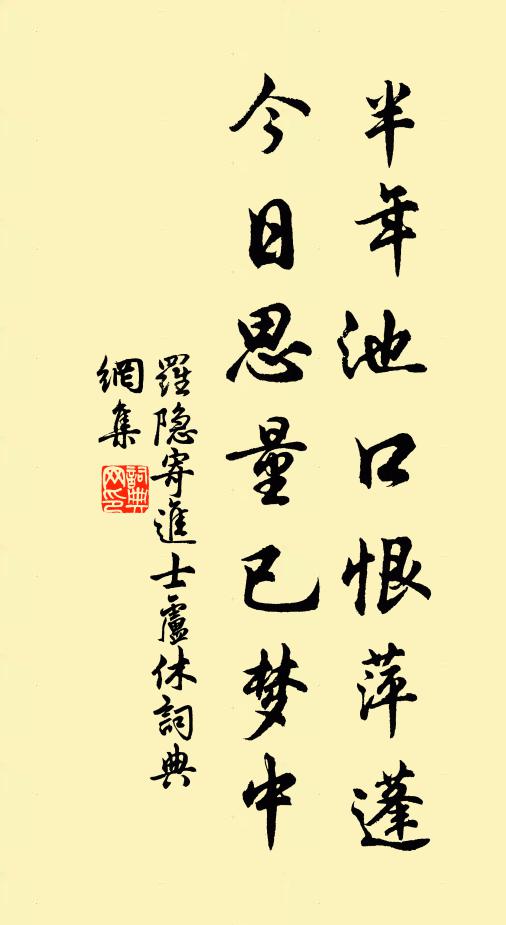 半年池口恨萍蓬
今日思量已梦中
羅隐寄進士盧休詞典
網集
詞典
网印